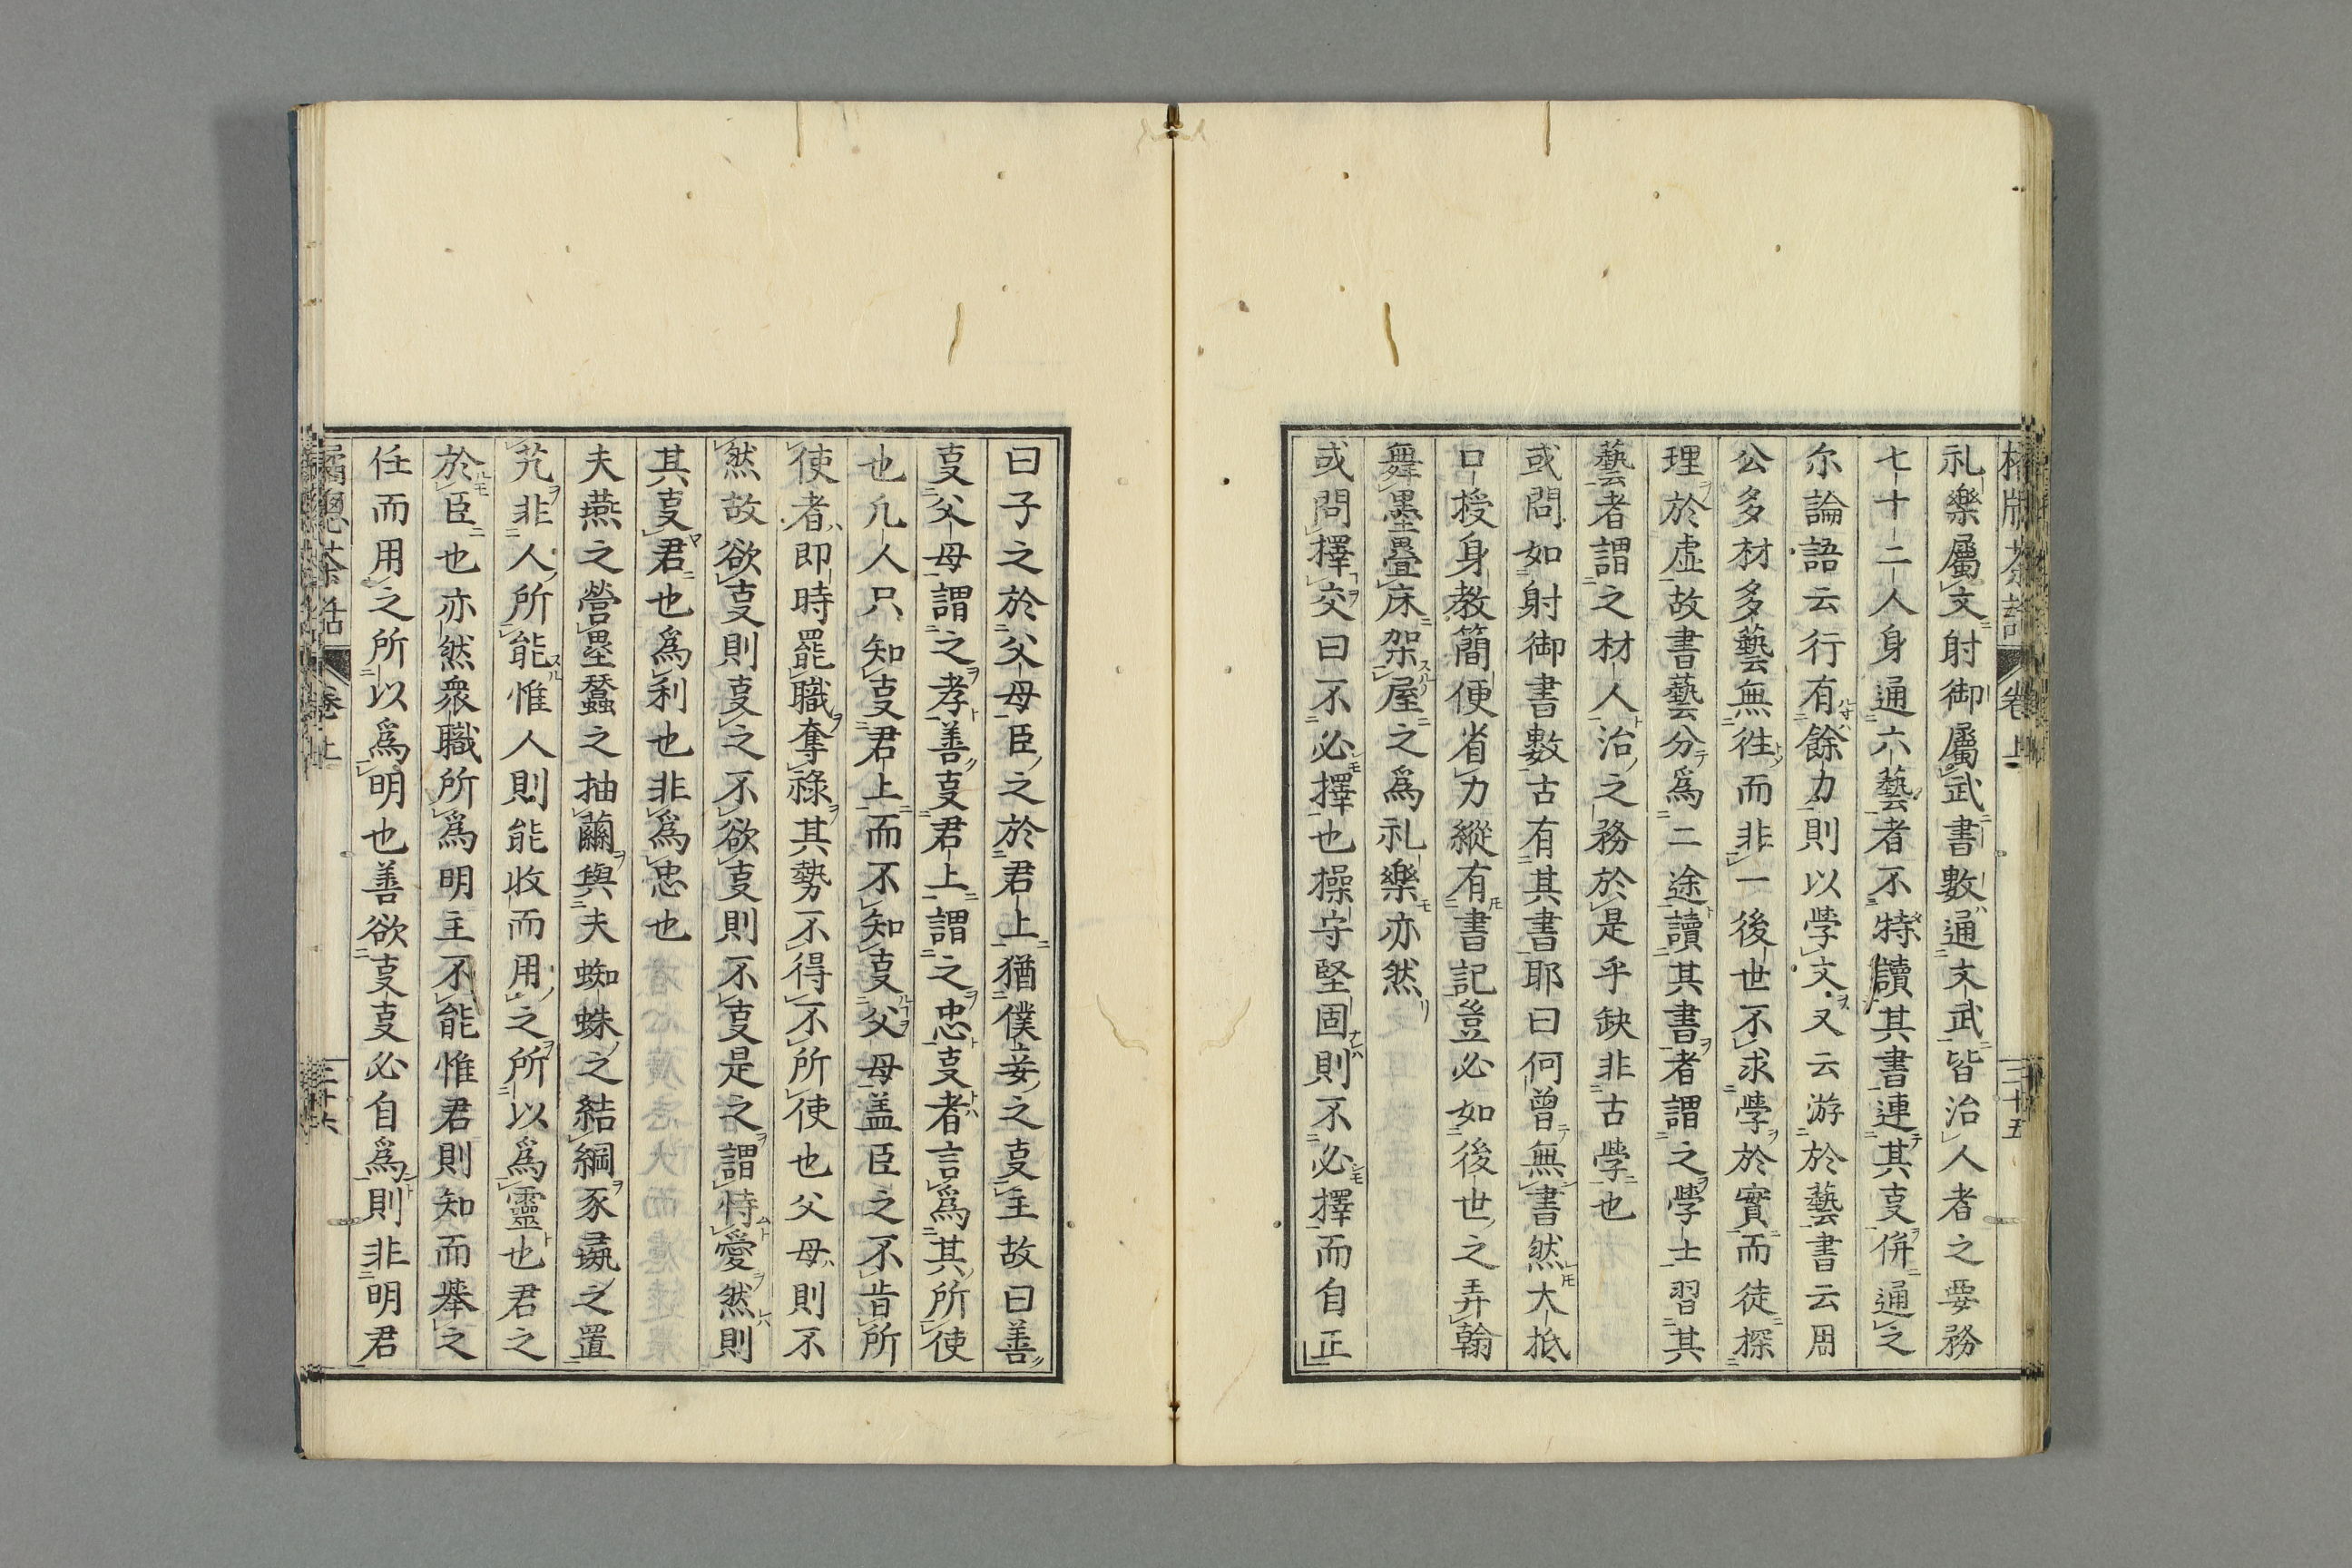 礼樂屬文射御屬武書數通文武皆治人者之要務
七十二人身通六藝者不特讀其書連其叓併通之
尓論語云行有餘力則以学文又云游於藝書云周
公多材多藝無徃而非一後世不求学於實而徒探
理於虚故書藝分為二途讀其書者謂之学士習其
藝者謂之材人治之務於是乎缺非古学也
或問如射御書數古有其書耶曰何曾無書然大抵
口授身教簡便省力縱有書記豈必如後世之弄翰
舞墨疊床架屋之爲礼樂亦然
或問擇交曰不必擇也操守堅固則不必擇而自正
卷上
三十五
曰子之於父母臣之於君上猶僕妾之叓主故曰善
叓父母謂之孝善叓君上謂之忠叓者言爲其所使
也凡人只知叓君上而不知叓父母盖臣之不肯所
使者即時罷職奪祿其勢不得不所使也父母則不
然故欲叓則叓之不欲叓則不叓是之謂恃愛然則
其叓君也爲利也非爲忠也
夫燕之營壘蠶之抽繭與夫蜘蛛之結綱豕彘之置
艽非人所能惟人則能收而用之所以爲靈也君之
於臣也亦然衆職所爲明主不能惟君則知而舉之
任而用之所以爲明也善欲叓叓必自爲則非明君
窻茶話
卷上
三十六